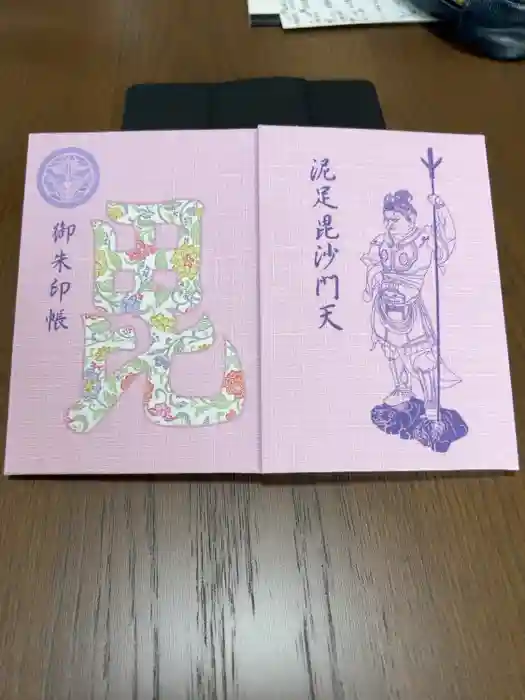 御朱印帳
毘
泥足毘沙門天